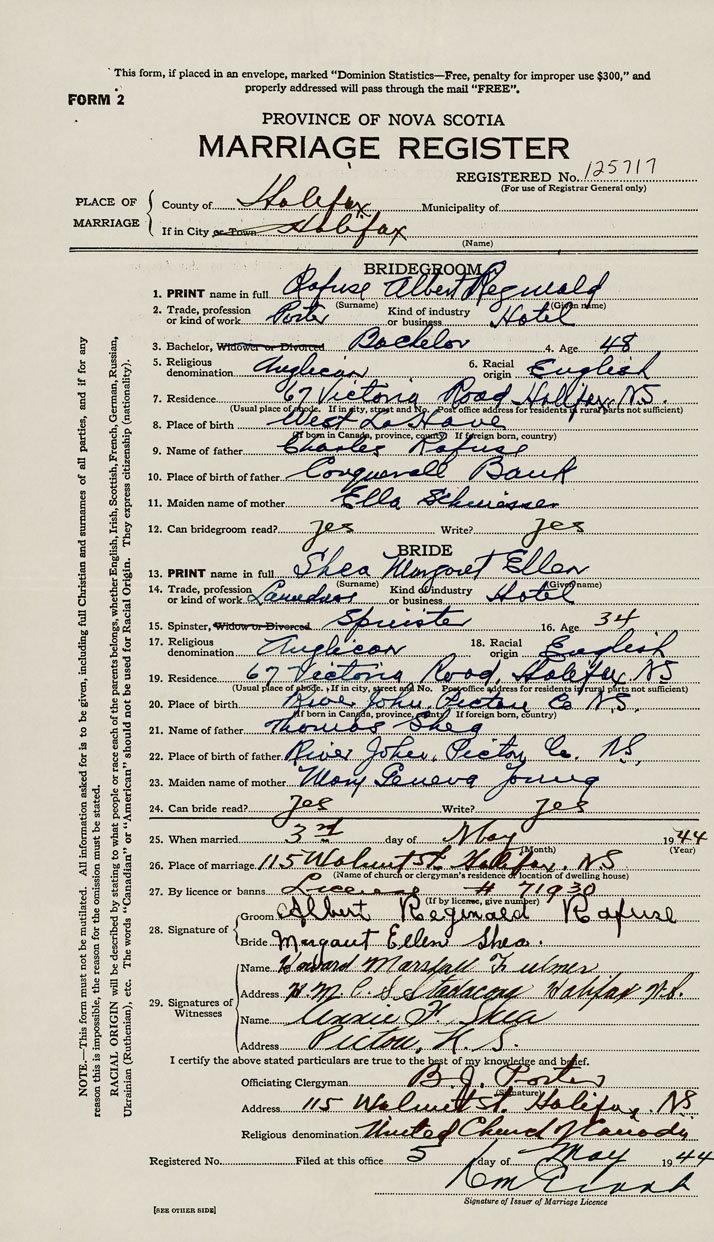 This form, if placed in an envelope, marked "Dominion Statistics—Free, penalty for improper use $300," and
properly addressed will pass through the mail "FREE".
FORM 2
PROVINCE OF NOVA SCOTIA
MARRIAGE REGISTER
REGISTERED No. 125717
(For use of Registrar General only)
PLACE OF MARRIAGE
County of Halifax Municipality of
If in City or Town Halifax
(Name)
BRIDEGROOM
1. PRINT name in full Rafuse Albert Reginald
(Surname) (Given name)
2. Trade, profession or kind of work Porter Kind of industry or business Hotel
3. Bachelor, Widower or Divorced Bachelor 4. Age 48
5. Religious denomination Anglican 6. Racial origin English
7. Residence 67 Victoria Road Halifax, N.S.
(Usual place of abode. If in city, street and No. Post office address for residents in rural parts not sufficient)
8. Place of birth West La Have
(If born in Canada, province, county) If foreign born, country)
9. Name of father Charles Rafuse
10. Place of birth of father Conquerall Bank
11. Maiden name of mother Ella
12. Can bridegroom read? yes Write? yes
BRIDE
13. PRINT name in full Shea Margaret Ellen
(Surname) (Given name)
14. Trade, profession or kind of work Laundress Kind of industry or business Hotel
15. Spinster, Widow or Divorced Spinster 16. Age 34
17. Religious denomination Anglican 18. Racial origin English
19. Residence 67 Victoria Road, Halifax, NS
(Usual place of abode. If in city, street and No. Post office address for residents in rural parts not sufficient)
20. Place of birth River John, Pictou Co NS.
(If born in Canada, province, county) If foreign born, country)
21. Name of father Thomas Shea
22. Place of birth of father River John, Pictou Co. NS.
23. Maiden name of mother Mary Geneva Young
24. Can bride read? yes Write? yes
25. When married 3rd day of May 1944
(Month) (Year)
26. Place of marriage 115 Walnut St. Halifax. NS
(Name of church or clergyman's residence or location of dwelling house)
27. By licence or banns License # 71930
(If by license, give number)
28. Signature of
Groom Albert Reginald Rafuse
Bride Margaret Ellen Shea.
29. Signatures of Witnesses
Name Howard Marshall Fulmer
Address H.M.C.S Stadacona Halifax N.S.
Name Annie F. Shea
Address Pictou, N.S.
I certify the above stated particulars are true to the best of my knowledge and belief.
Officiating Clergyman B. J. Porter
(Signature)
Address 115 Walnut St. Halifax, NS
Religious denomination United Church of Canada
Registered No. Filed at this office 5 day of May 1944
Signature of Issuer of Marriage Licence
[SEE OTHER SIDE]
NOTE.—This form must not be mutilated. All information asked for is to be given, including full Christian and surnames of all parties, and if for any
reason this is impossible, the reason for the omission must be stated.
RACIAL ORIGIN will be described by stating to what people or race each of the parents belongs, whether English, Irish, Scottish, French, German, Russian,
Ukrainian (Ruthenian), etc. The words "Canadian" or "American" should not be used for Racial Origin. They express citizenship (nationality).